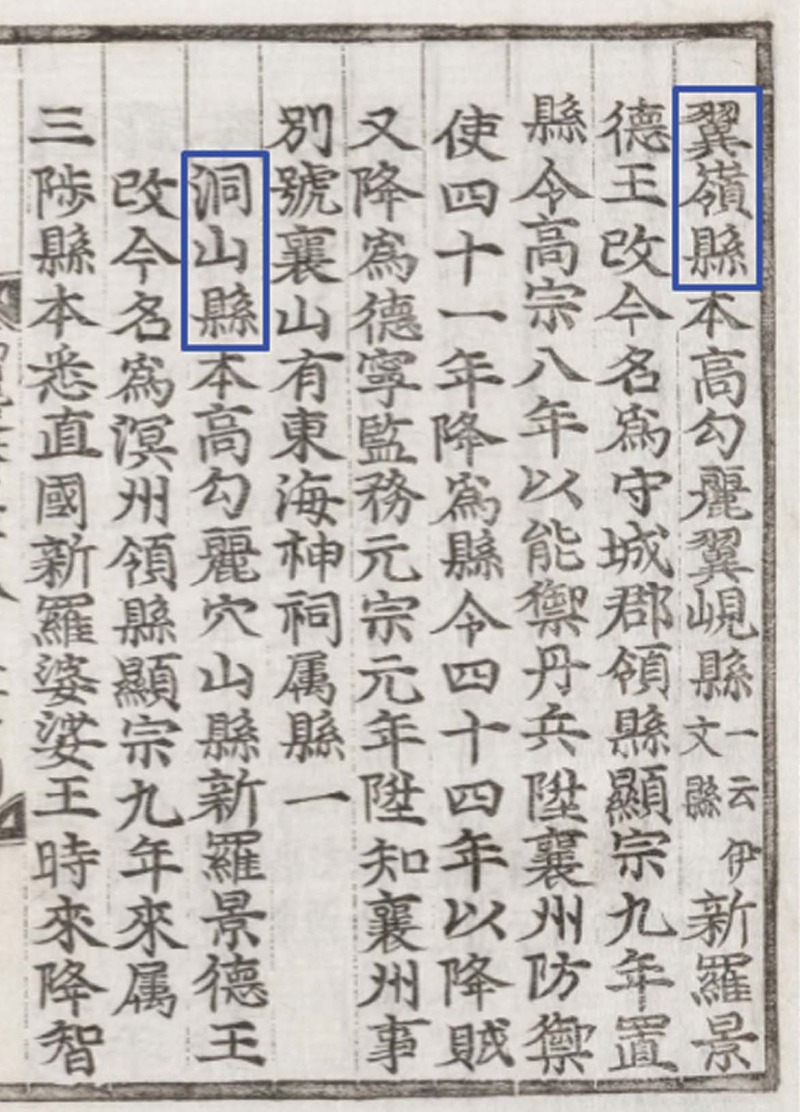 翼嶺縣本高勾麗翼峴縣一云伊文縣新羅景
德王改今名爲守城郡領縣顯宗九年置
縣令高宗八年以能禦丹兵陞襄州防禦
使四十一年降爲縣令四十四年以降賊
又降爲德寧監務元宗元年陞知襄州事
別號襄山有東海神祠属縣一
洞山縣本高勾麗穴山縣新羅景德王
改今名爲溟州領縣顯宗九年來属
三陟縣本悉直國新羅婆娑王時來降智